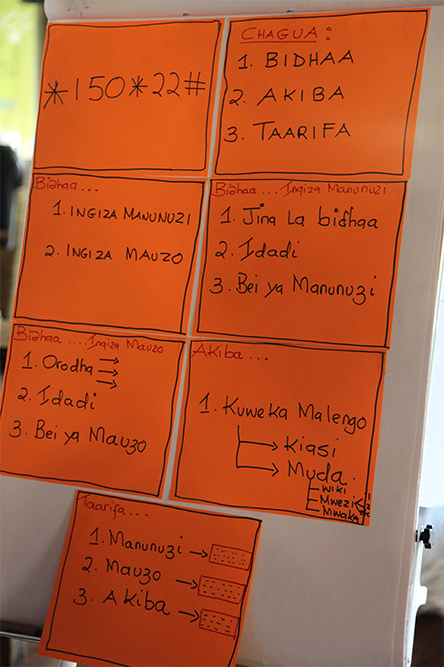 *150*22#
CHAGUA:
1. BIDHAA
2. AKIBA
3. TAARIFA
Bidhaa...
1. INGIZA MANUNUZI
2. INGIZA MAUZO
Bidhaa... Ingiza Manunuzi
1. Jina La bidhaa
2. Idadi
3. Bei ya Manunuzi
Bidhaa.... Ingiza Mauzo
1. Orodha
2. Idadi
3. Bei ya Mauzo
AKiba...
1. Kuweka Malengo
Kiasi
Muda
WIKI
Mwezi
Mwaka
Taarifa...
1. Manunuzi
2. Mauzo
3. AKiba